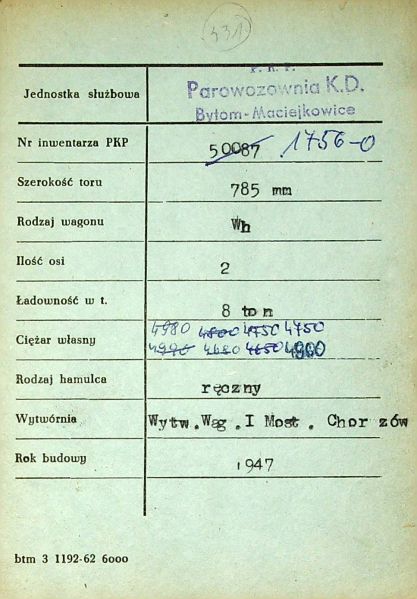 431
P. K. P.
Jednostka służbowa Parowozownia K.D.
Bytom-Maciejkowice
Nr inwentarza PKP 50087 1756-0
Szerokość toru 785 mm
Rodzaj wagonu Wh
Ilość osi 2
Ładowność w t. 8 ton
4980 4800 4750 4750
Ciężar własny
4990 4680 4650 4900
Rodzaj hamulca ręczny
Wytwórnia Wytw.Wąg.I Most. Chorzów
Rok budowy 1947
btm 3 1192-62 6000